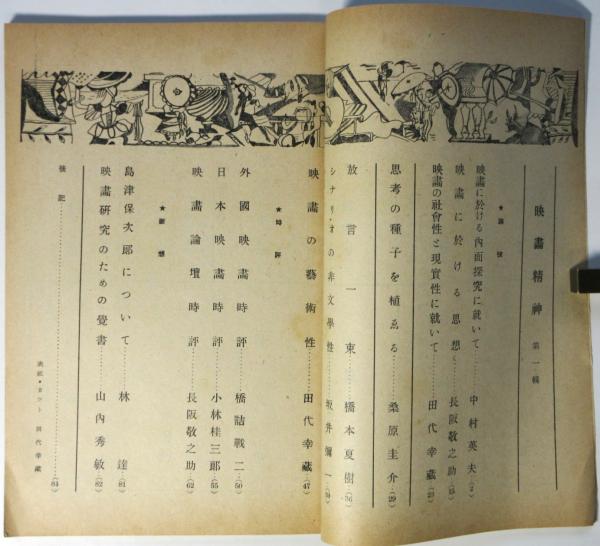 映畫精神 第一輯
映畫に於ける內面探究に就いて…… 中村英夫 (2)
映畫に於ける思想…… 長阪敬之助 (15)
映畫の社會性と現實性に就いて…… 田代幸藏 (23)
思考の種子を植ゑる…… 桑原圭介 (29)
放言一束 橋本夏樹 (36)
シナリオの非文學性…… 坂井彌一
映畫の藝術性…… 田代幸藏 (47)
★時評
外國映畫時評…… 橋詰戰二 (50)
日本映畫時評…… 小林桂三郎 (55)
映畫論壇時評…… 長阪敬之助 (62)
島津保次郎について…… 林達 (81)
映畫硏究のための覺書…… 山內秀敏 (82)
後記…… (84)
表紙・カット 田代幸藏